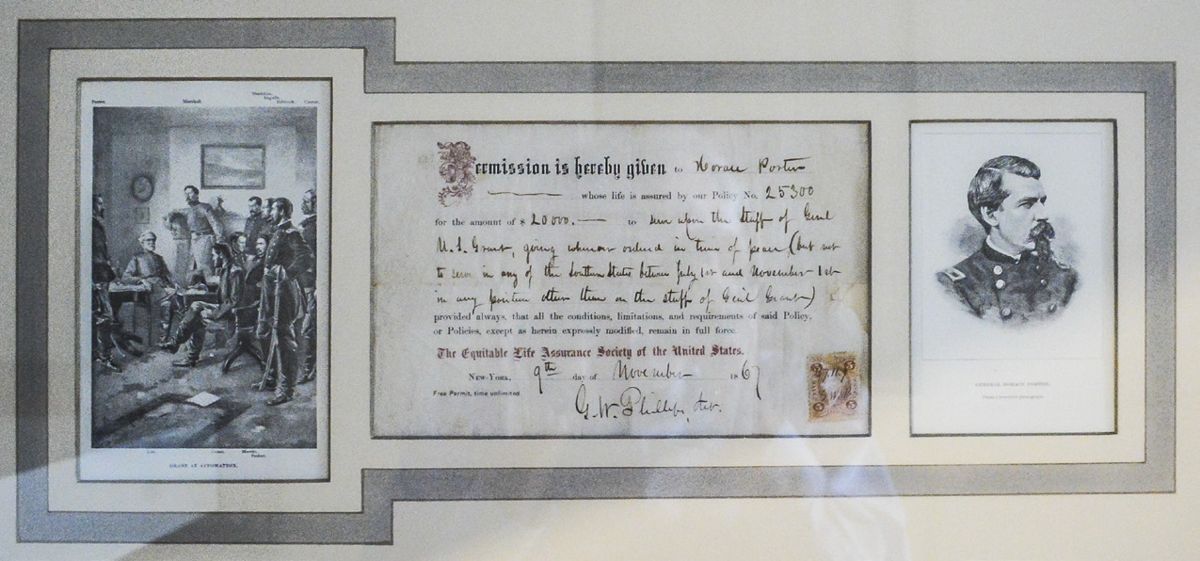 Porter. Marshall.
Babcock. Custer.
GRANT AT APPOMATTOX.
Permission is hereby given to Horace Porter
whose life is assured by our Policy No. 25300
for the amount of $ 20000. to serve upon the staff of Genl
U. S. Grant, going wherever ordered in time of peace, (but not
to serve in any of the Southern States between July 1st and November 1st
in any position other than on the staff of Genl Grant)
provided always, that all the conditions, limitations, and requirements of said Policy,
or Policies, except as herein expressly modified, remain in full force.
The Equitable Life Assurance Society of the United States.
New-York, 9th day of November 1867
Free Permit, time unlimited
G. W. Phillips,
GENERAL HORACE PORTER.